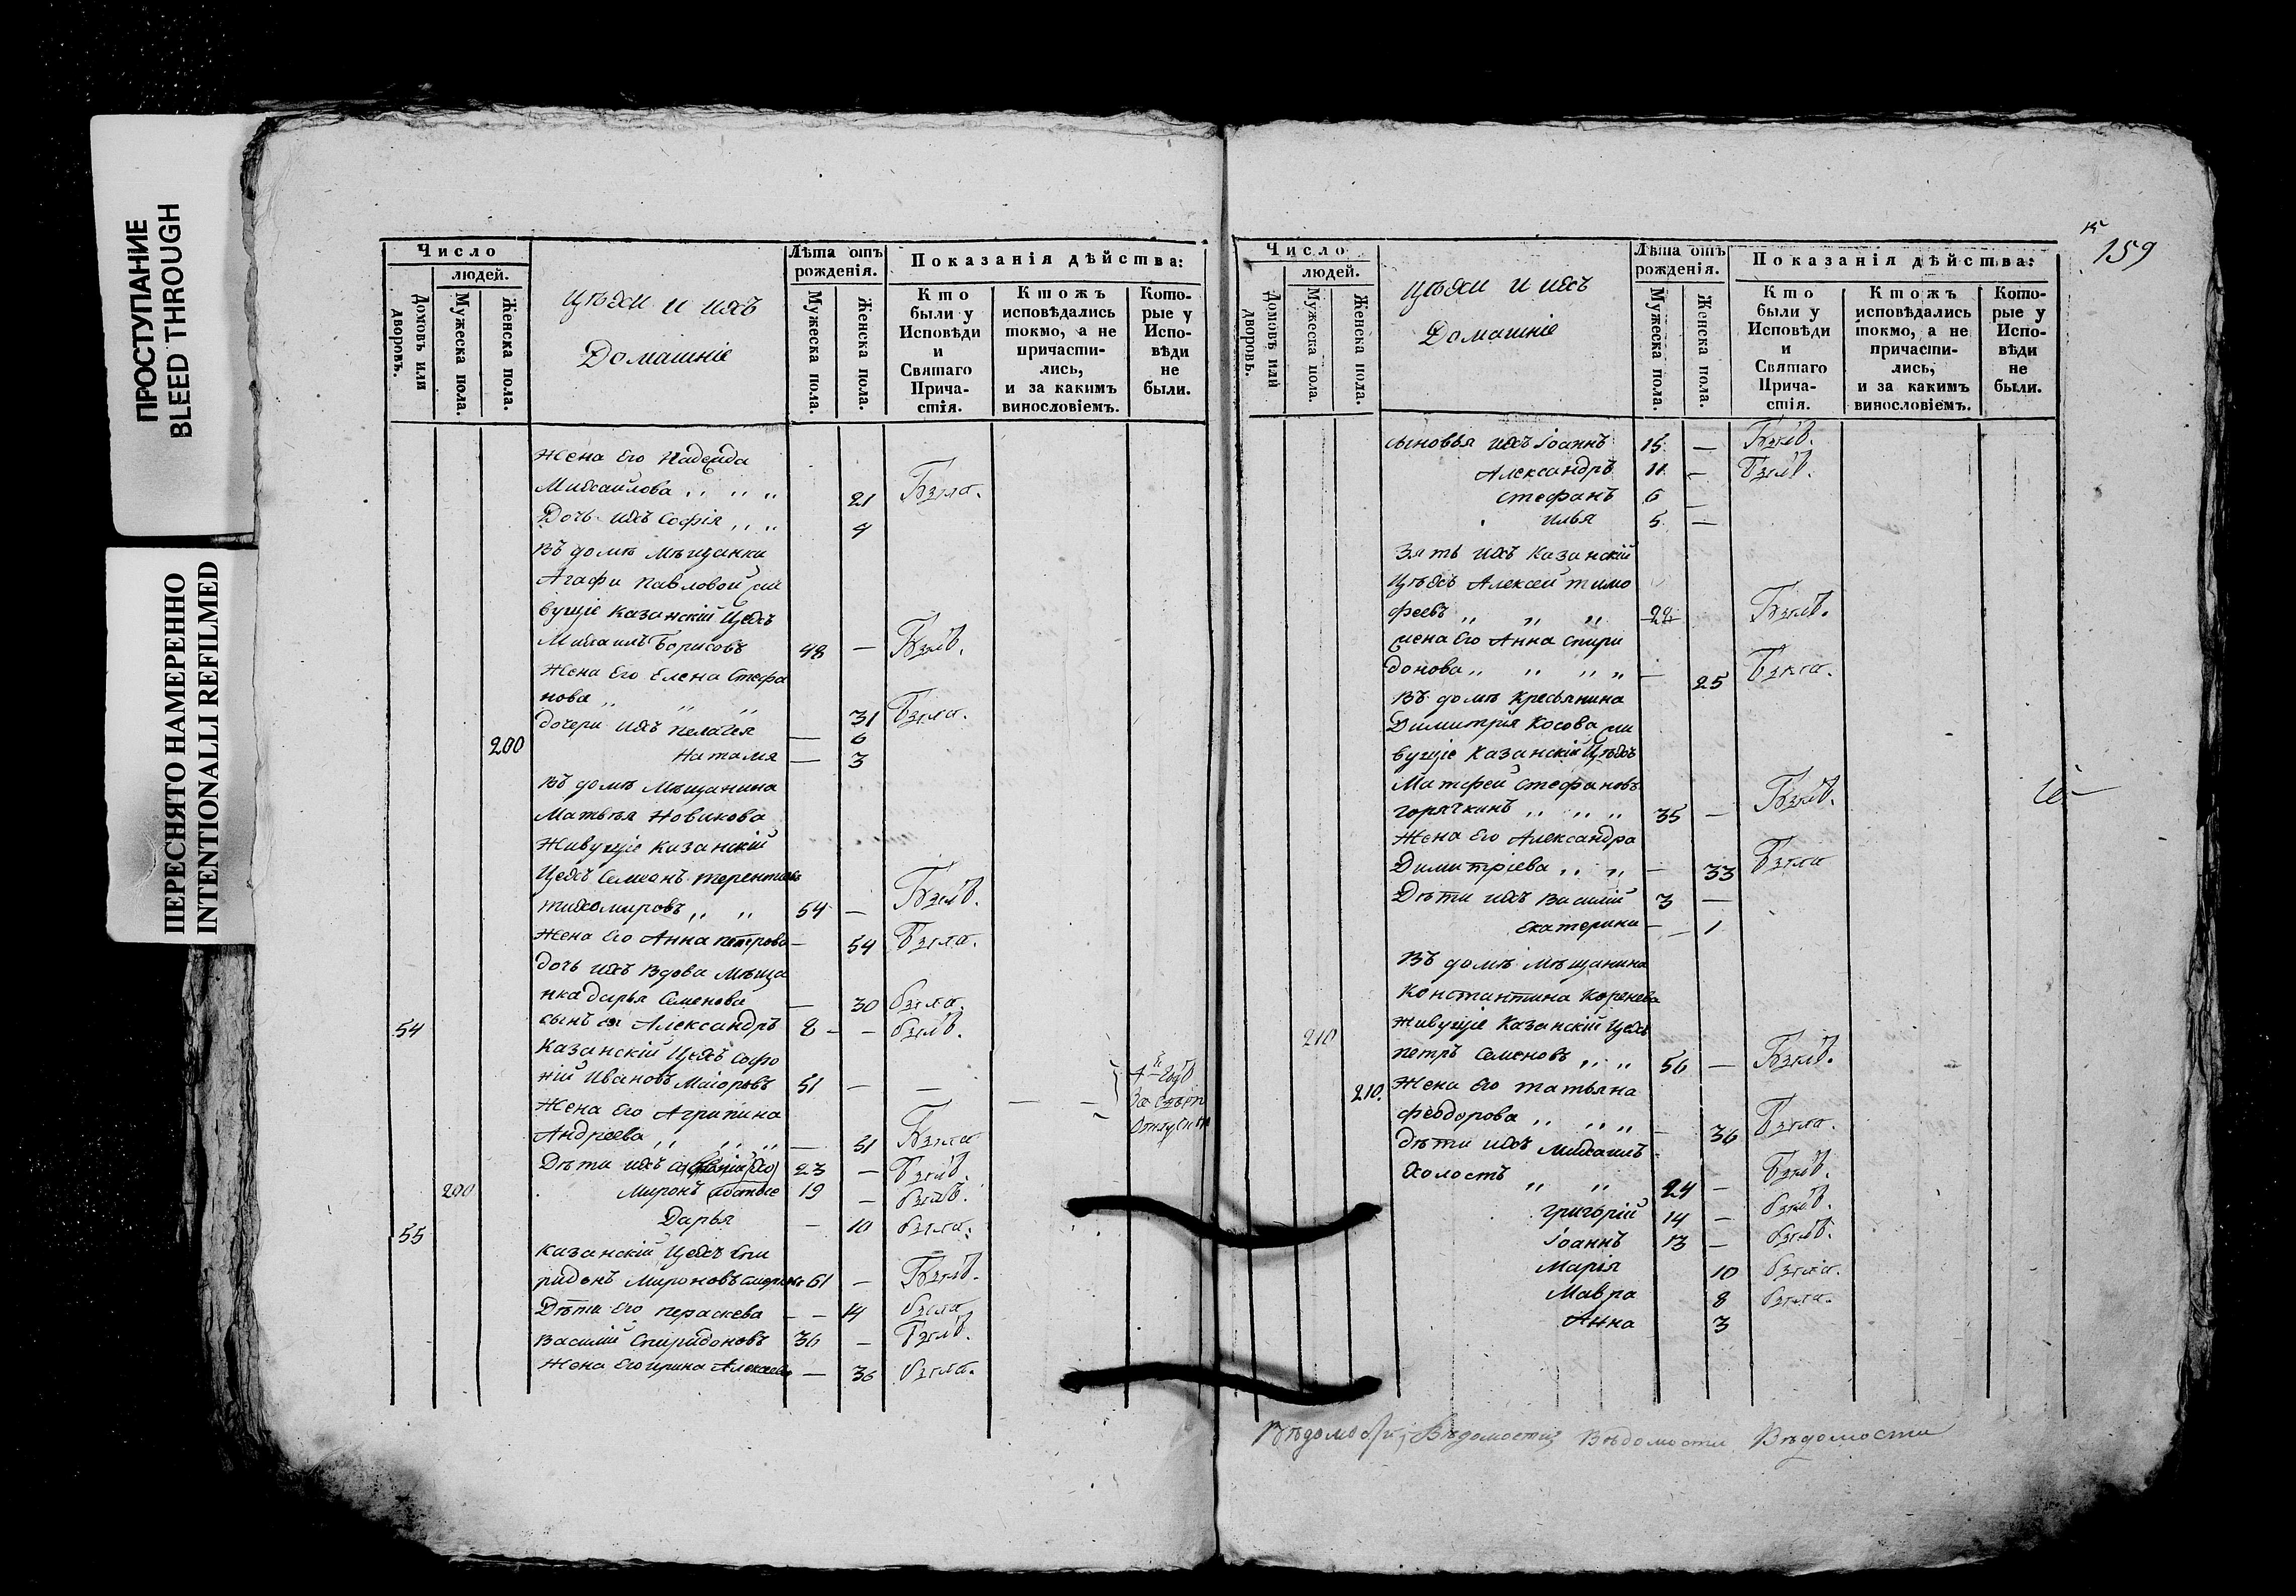 ПРОСТУПАНИЕ
BLEED THROUGH
ПЕРЕСНЯТО НАМЕРЕННО
INTENTIONALLI REFILMED
Число
людей.
Домовъ или дворовъ.
Мужеска пола.
Женска пола.
Цѣхи и ихъ
Домашніе
Лѣта отъ рожденія.
Мужеска пола.
Женска пола.
Показанія дѣйства:
Кто были у Исповѣди и Святаго Причастія.
Ктожъ исповѣдались токмо, а не причастились, и за какимъ винословіемъ.
Которые у Исповѣди не были.
Жена Его Надежда
Михаилова ,, ,, ,, 21 Была.
Дочь ихъ Софія ,, ,, 4
Въ домѣ Мѣщанки
Агафи Павловой жи
вущіе Казанскій Цехъ
Михаилъ Борисовъ 48 — Былъ.
Жена Его Елена Стефа
нова ,, ,, ,, 31 Была.
дочери ихъ Пелагея — 6
200 Наталия — 3
Въ домѣ Мѣщанина
Матвѣя Новикова
Живущіе Казанскій
Цехъ Симеонъ Терентиевъ
Тихомировъ ,, ,, 54 — Былъ.
Жена Его Анна Петрова — 54 Была.
дочь ихъ Вдова Мѣща
нка дарья Семенова — 30 была.
54 сынъ ея Александръ 8 — — былъ.
Казанскій Цехъ Софо
ній Ивановъ Маіоровъ 51 — — 4й годъ
Жена Его Агрипина — — За
Андреева ,, ,, ,, — 51 Была
Дѣти ихъ 23 — Былъ.
200 Миронъ 19 — былъ.
Дарья — 10 была.
55
Казанскій Цехъ Спи
ридонъ Мироновъ 61 — Былъ.
Дѣти Его Пераскева — — 14 была
Василій Спиридоновъ 36 — Былъ.
Жена Его Ирина Алексеева — 36 была.
159
Число
людей.
Домовъ или дворовъ.
Мужеска пола.
Женска пола.
Цѣхи и ихъ
Домашніе
Лѣта отъ рожденія.
Мужеска пола.
Женска пола.
Показанія дѣйства:
Кто были у Исповѣди и Святаго Причастія.
Ктожъ исповѣдались токмо, а не причастились, и за какимъ винословіемъ.
Которые у Исповѣди не были.
сыновья ихъ Іоаннъ 15 — Былъ.
Александръ 11 — Былъ.
Стефанъ 6 —
Илья 5 —
Зять ихъ Казанскій
Цѣхъ Алексей Тимо
феевъ ,, ,, ,, 22 Былъ.
жена Его Анна Спири
донова ,, ,, ,, ,, — 25 Была.
Въ домѣ Кресьянина
Димитрія Косова жи
вущіе Казанскій Цѣхъ
Матфей Стефановъ
Горячкинъ ,, ,, ,, 35 — Былъ.
Жена Его Александра
Димитріева ,, ,, — 33 Была
Дѣти ихъ Василій 3 —
Екатерина — — 1
Въ домѣ Мѣщанина
Константина Коренева
210 Живущіе Казанскій Цехъ
Петръ Семеновъ ,, ,, 56 — Былъ.
210. Жена Его Татьяна
Феодорова ,, ,, ,, — 36 Была.
дѣти ихъ Михаилъ
Холостъ ,, ,, 24 — Былъ.
Григорій 14 — былъ.
Іоаннъ 13 — былъ.
Марія 10 была.
Мавра 8 была.
Анна 3
Вѣдомости, Вѣдомости Вѣдомости Вѣдомости